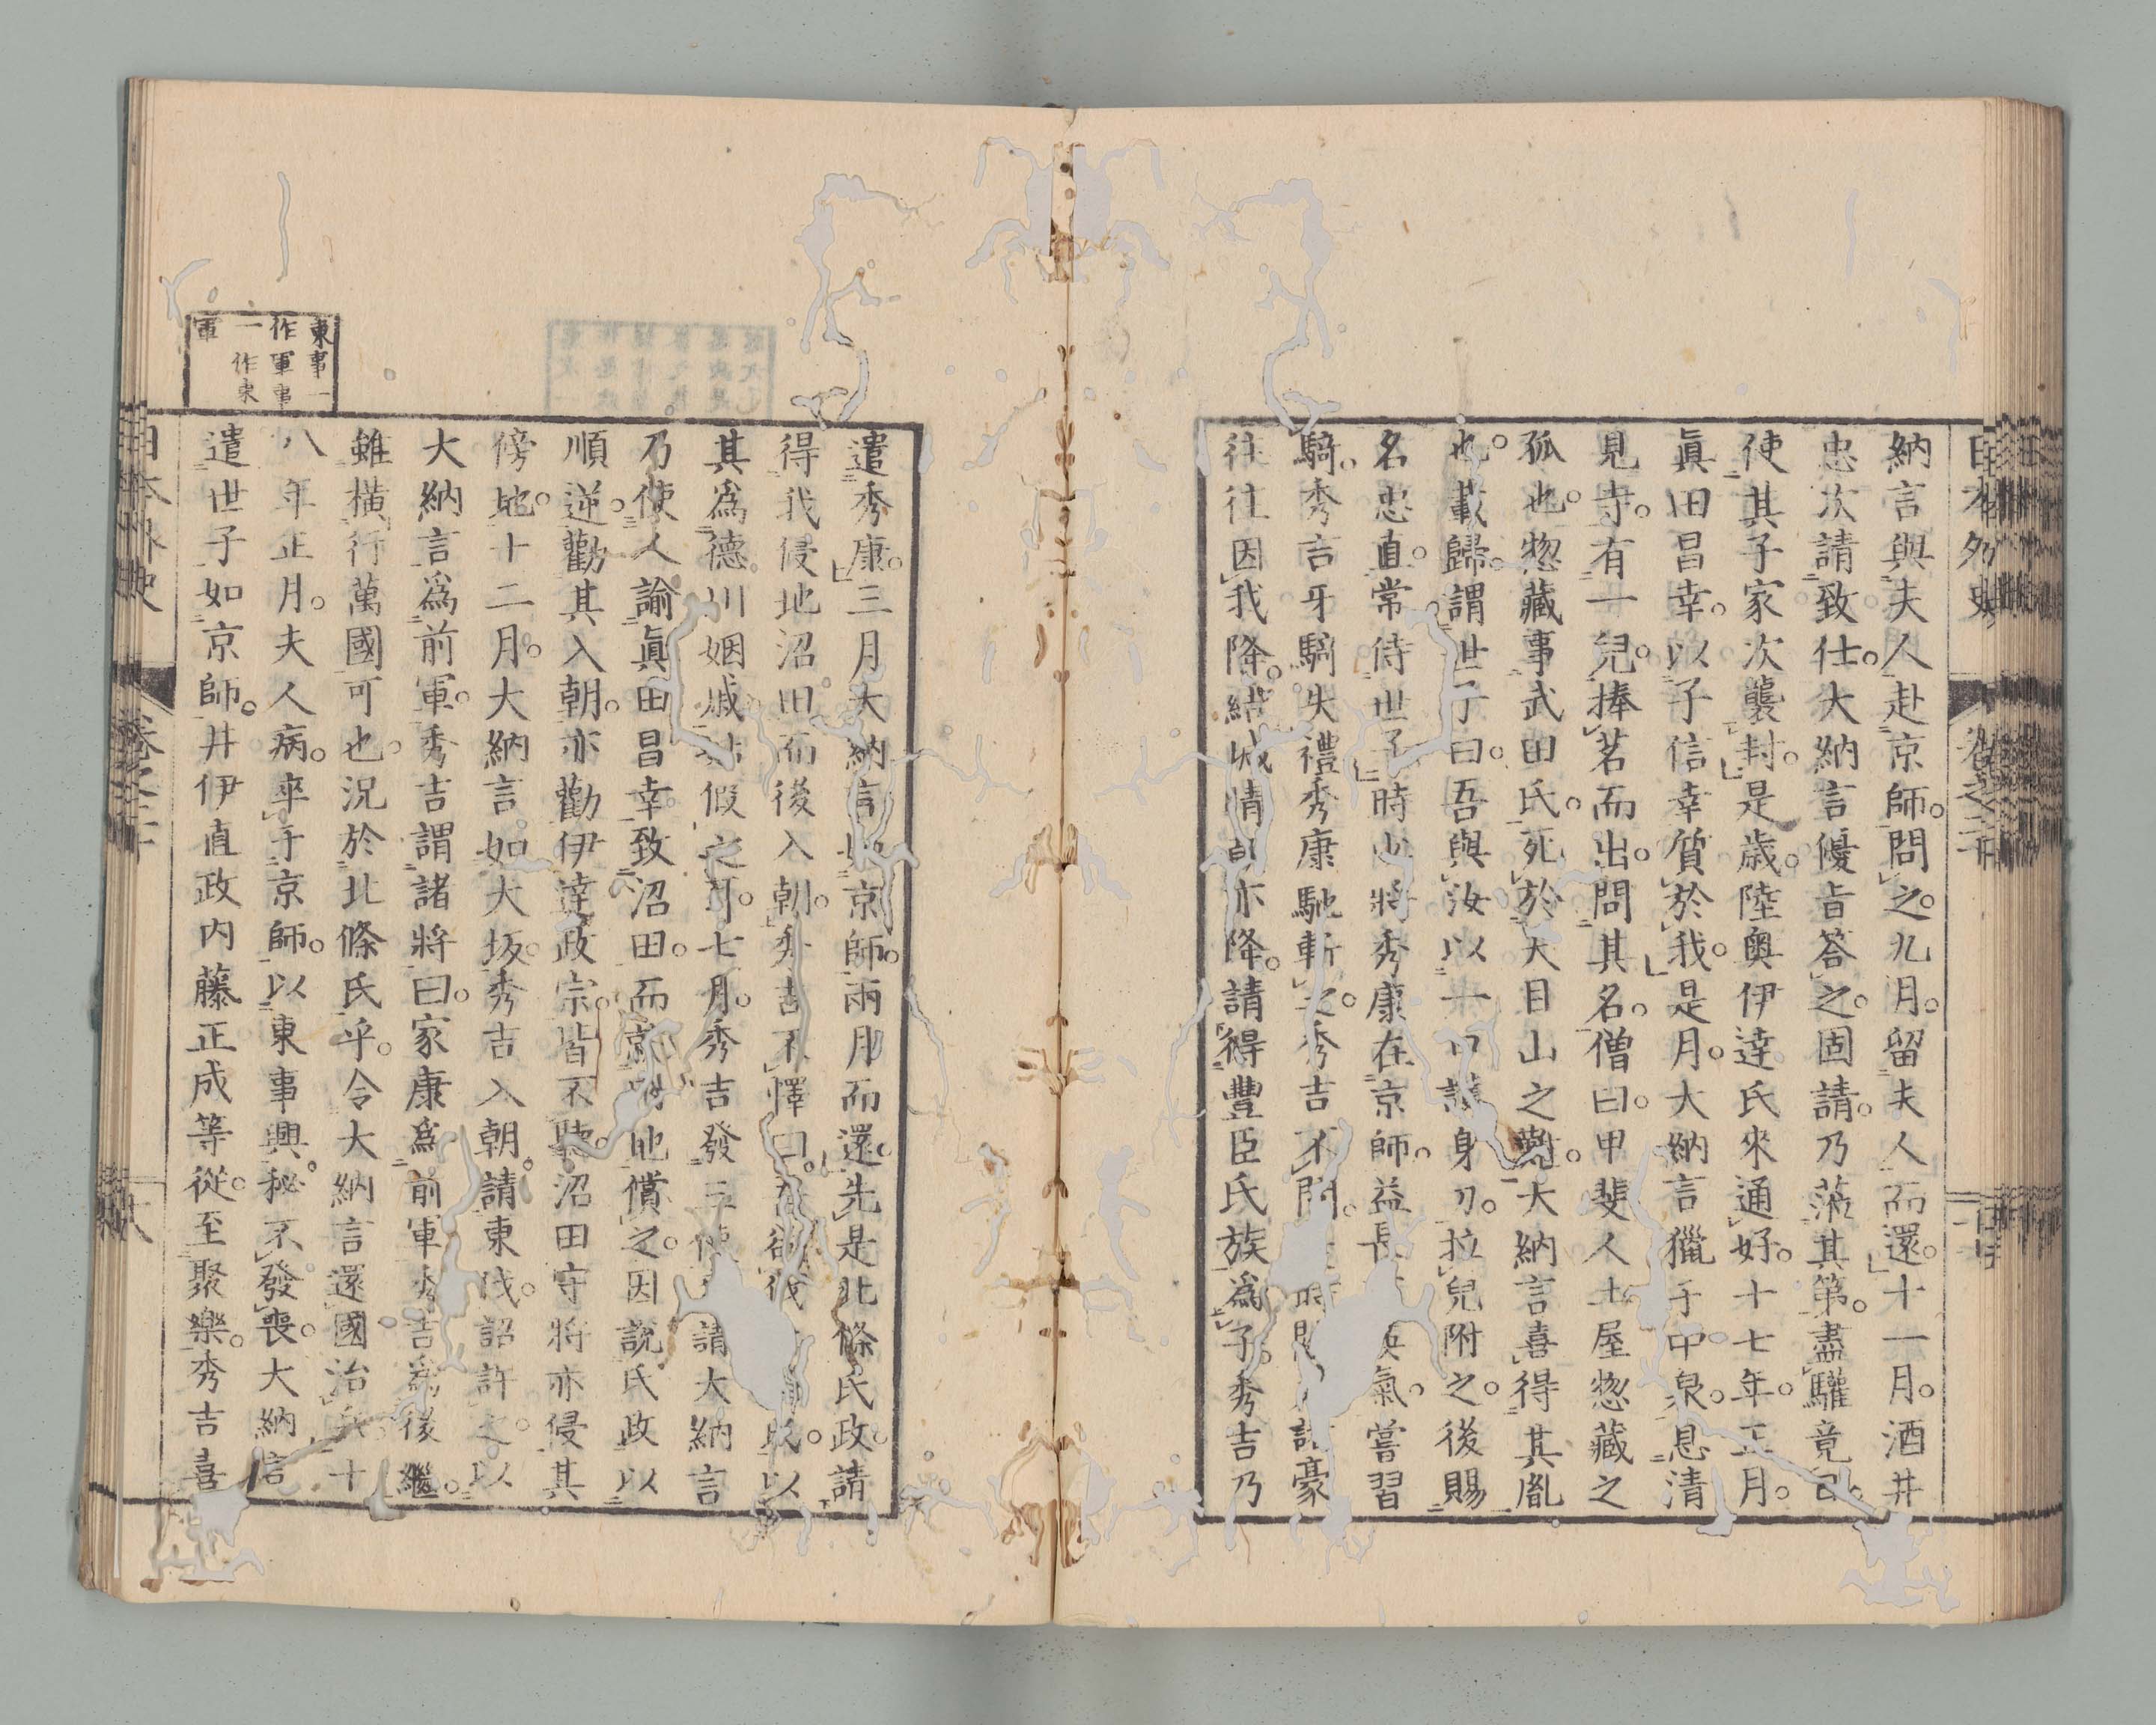 納言與夫人赴京師。問之。九月。留夫人而還。十一月。酒井
忠次請致仕。大納言優旨答之。固請。乃
其第。盡驩竟日。
使其子家次襲封。是歳。陸奥伊達氏來通好。十七年。正月。
眞田昌幸。以子信幸質於我。是月。大納言獵于中泉。息清
見寺。有一兒。捧茗而出。問其名。僧曰。甲斐人土屋惣藏之
孤也。惣藏事武田氏。死於天目山之難。大納言喜得其胤
也。載歸。謂世子曰。吾與汝以一
護身刀。拉兒附之。後賜
名忠直。常侍世子。時少將秀康在京師。益長
英氣。嘗習
騎。秀吉牙騎失禮。秀康馳斬之。秀吉不問。
諸豪
往往因我降。結城晴朝亦降。請得豐臣氏族爲子。秀吉乃
遣秀康。三月大納言如京師。兩月而還。先是北條氏政。請
得我侵地沼田而後入朝。秀吉不懌曰。吾欲伐
氏。以
其爲德川姻戚姑假之耳。七月。秀吉發三使
請大納言
乃使人諭眞田昌幸。致沼田。而
割地償之。因説氏政以
順逆。勸其入朝。亦勸伊達政宗。皆不聽。沼田守將亦侵其
傍地。十二月。大納言如大坂。秀吉入朝。請東伐。詔許之。以
大納言爲前軍。秀吉謂諸將曰。家康爲前軍。秀吉爲後繼。
雖橫行萬國可也。況於北條氏乎。令大納言還國治兵。十
八年正月。夫人病。卒于京師。以東事興。秘不發喪。大納言
遣世子如京師。井伊直政内藤正成等從。至聚樂。秀吉喜
東事一
作軍事
一作東
軍
日本外史
卷之二十
日本外史
卷之二十